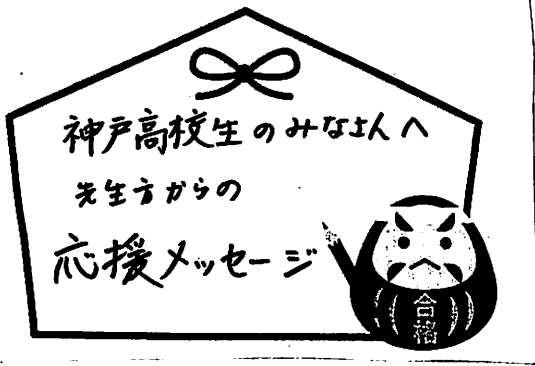 神戸高校生のみなさんへ
先生方からの
応援メッセージ
合格